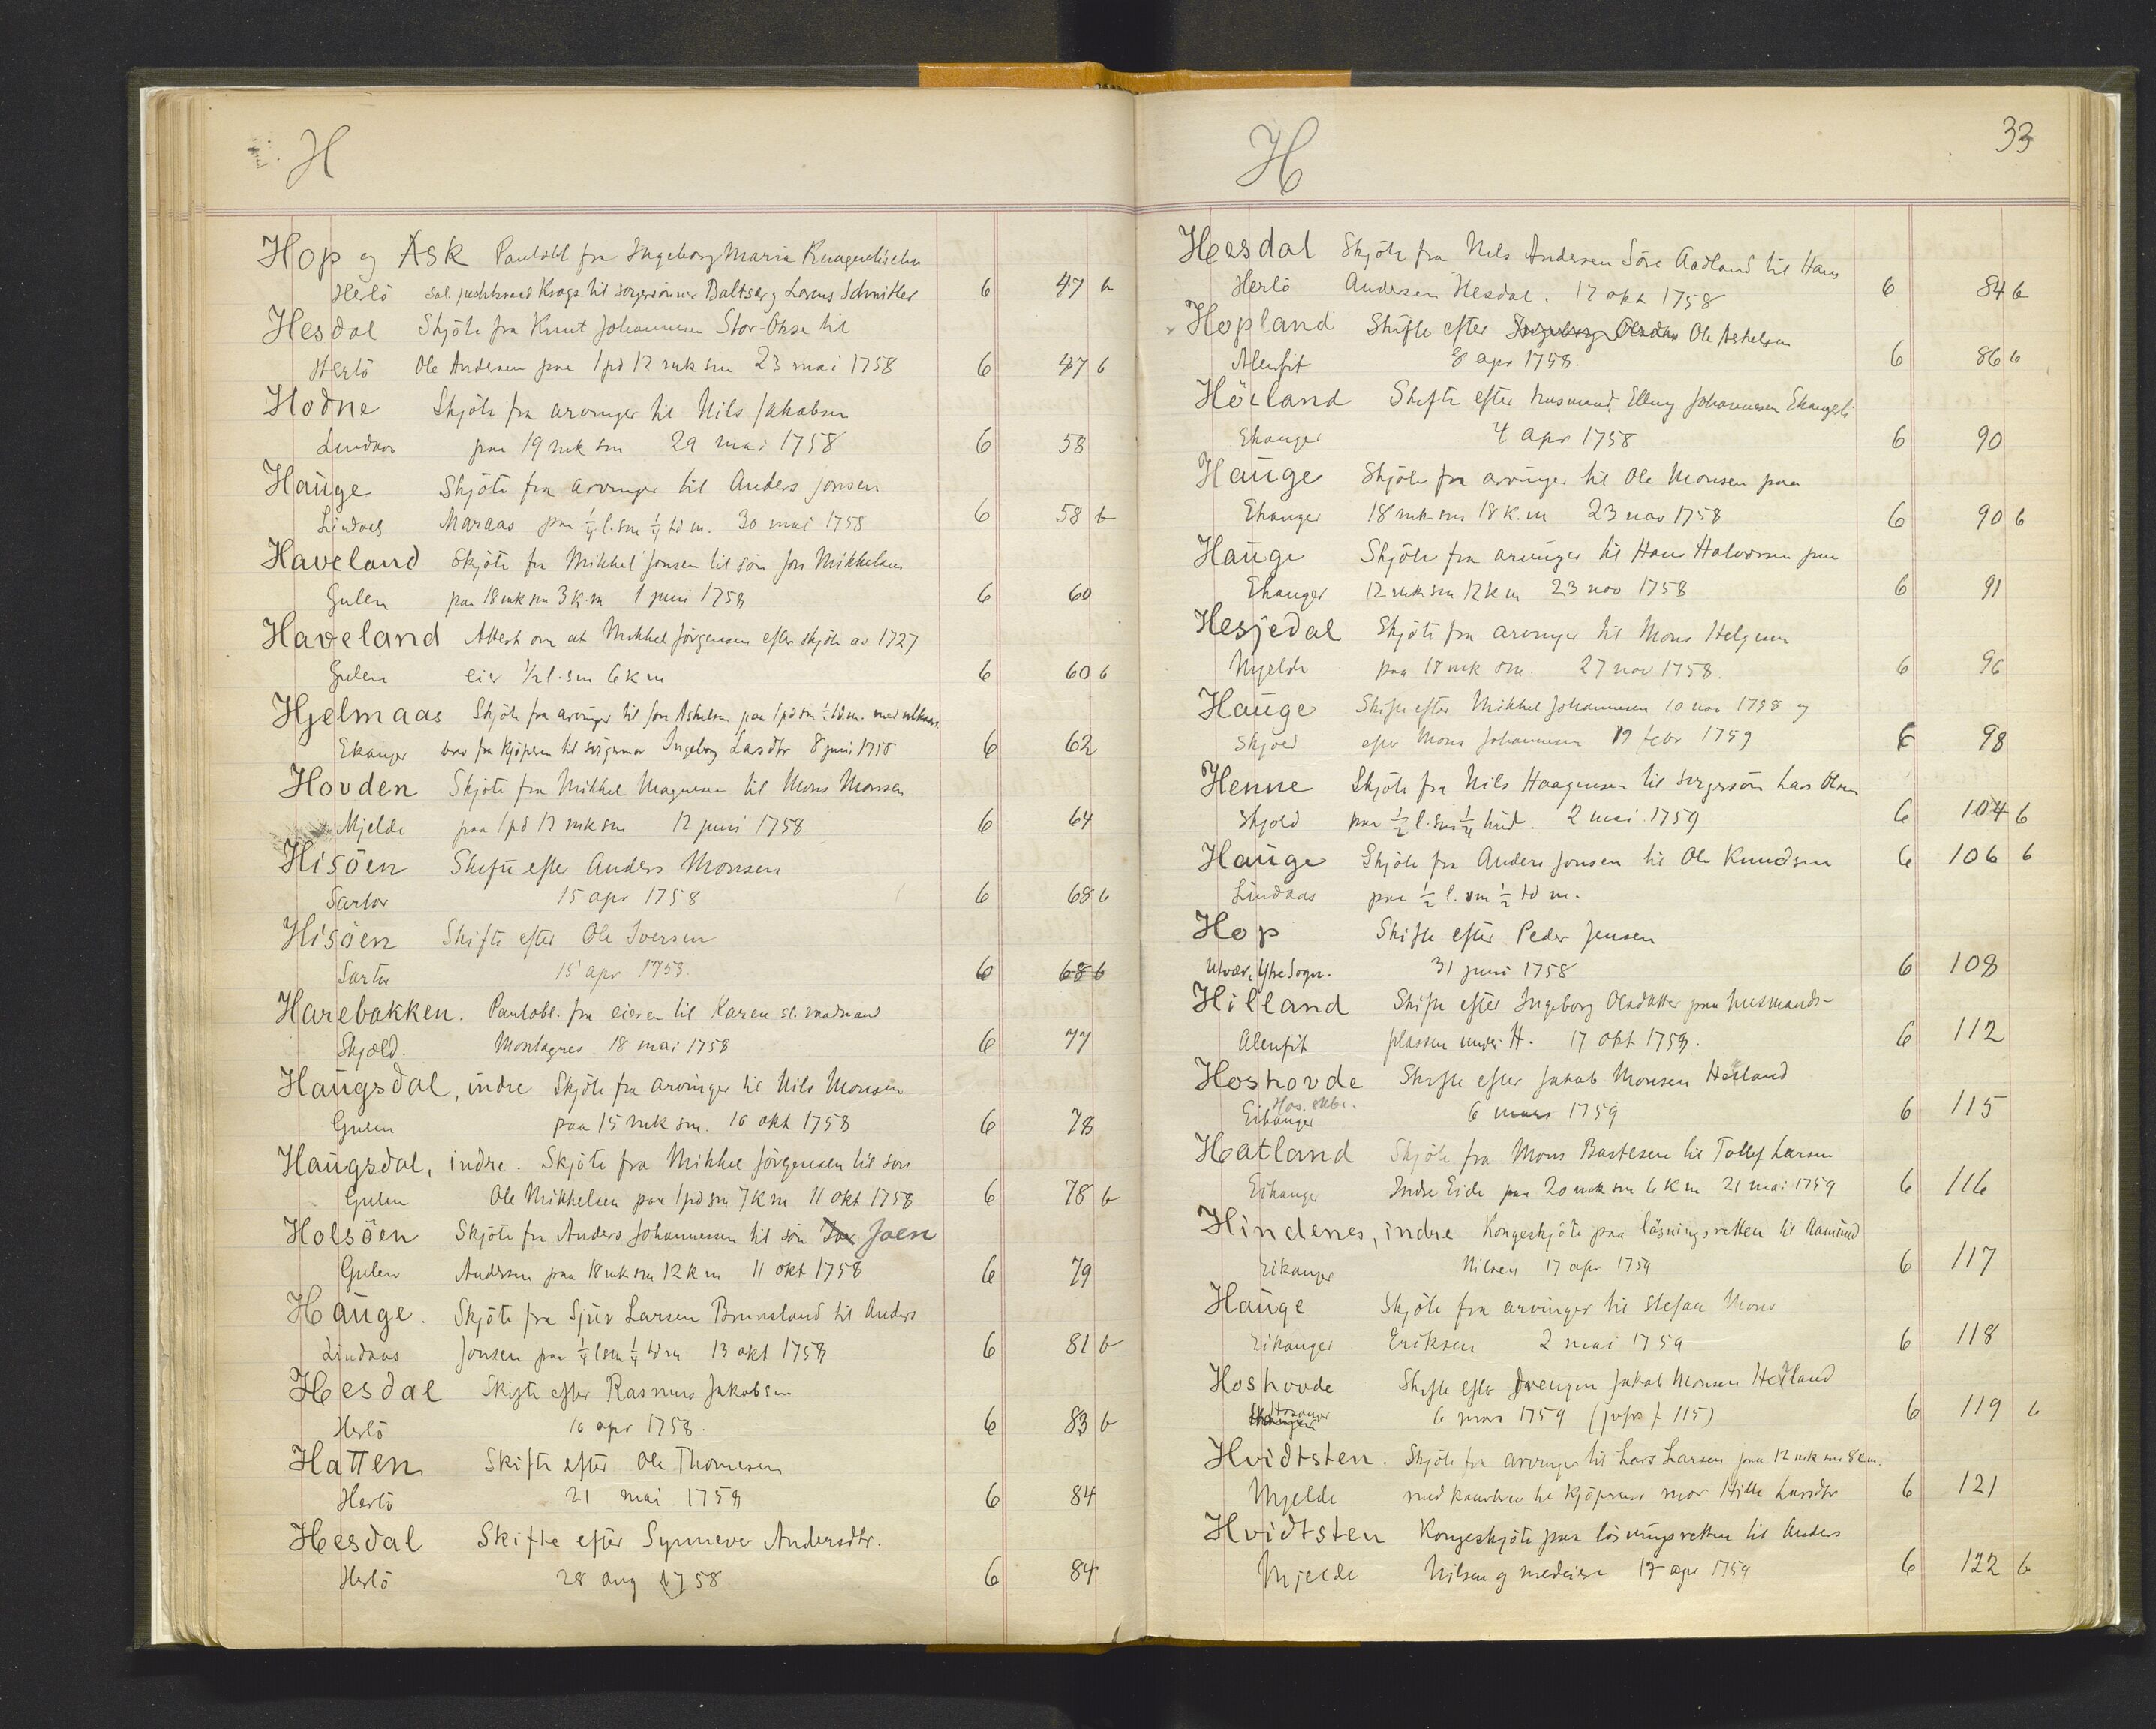 H
Hop og Ask Pantobl fra Ingeborg Maria
Herlö sal. justitsraad Krogs til svigersönner Baltser og Lorens Schnitler 6 47 b
Hesdal Skjöte fra Knut Johannesen Stor-Okse til
Herlö Ole Andersen paa 1 pd 12 mk sm 23 mai 1758 6 47 b
Hodne Skjöte fra arvinger til Nils Jakobsen
Lindaas paa 19 mk sm 29 mai 1758 6 58
Hauge Skjöte fra arvinger til Anders Jonsen
Lindaas Maraas paa 1/4 l. sm 1/4 td m. 30 mai 1758 6 58 b
Haveland Skjöte fra Mikkel Jonsen til sön Jon Mikkelsen
Gulen paa 18 mk sm 3 k. m 1 juni 1758 6 60
Haveland Attest om at Mikkel Jörgensen efter skjöte av 1727
Gulen eier 1/2 l. sm 6 k m 6 60 b
Hjelmaas Skjöte fra arvinger til Jon Askelsen paa 1 pd sm 1/2 td. m. med
Ekanger brev fra kjöperen til svigermor Ingeborg Lasdtr 8 juni 1758 6 62
Hovden Skjöte fra Mikkel Magnesen til Mons Monsen
Mjelde paa 1 pd 12 mk sm 12 juni 1758 6 64
Hisöen Skifte efter Anders Monsen
Sartor 15 apr 1758 6 68 b
Hisöen Skifte efter Ole Iversen
Sartor 15 apr 1758. 6 68 b
Harebakken. Pantobl. fra eieren til Karen sl. raadmand
Skjold. Montagnes 18 mai 1758 6 77
Haugsdal, indre Skjöte fra arvinger til Nils Monsen
Gulen paa 15 mk sm. 16 okt 1758 6 78
Haugsdal, indre. Skjöte fra Mikkel Jörgensen til sön
Gulen Ole Mikkelsen paa 1 pd sm 7 k m 11 okt 1758 6 78 b
Holsöen Skjöte fra Anders Johannessen til sön Joen
Gulen Andersen paa 18 mk sm 12 k m 11 okt 1758 6 79
Hauge. Skjöte fra Sjur Larsen Brunsland til Anders
Lindaas Jonsen paa 1/4 l sm 1/4 td m 13 okt 1758 6 81 b
Hesdal Skifte efter Rasmus Jakobsen
Herlö 16 apr 1758. 6 83 b
Hatten Skifte efter Ole Thomesen
Herlö 21 mai 1758 6 84
Hesdal Skifte efter Synnever Andersdtr.
Herlö 28 aug 1758 6 84
H 33
Hesdal Skjöte fra Nils Andersen Söre Aadland til Hans
Herlö Andersen Hesdal. 17 okt 1758 6 84 b
Hopland Skifte efter Ingeborg Olsdtr Ole Askelsen
Alenfit 8 apr 1758. 6 86 b
Höiland Skifte efter husmand Elling Johannesen
Ekanger 4 apr 1758 6 90
Hauge Skjöte fra arvinger til Ole Monsen paa
Ekanger 18 mk. sm 18 k. m 23 nov 1758 6 90 b
Hauge Skjöte fra arvinger til Hans Halvorsen paa
Ekanger 12 mk sm 12 k m 23 nov 1758 6 91
Hesjedal Skjöte fra arvinger til Mons Helgesen
Mjelde paa 18 mk sm. 27 nov 1758. 6 96
Hauge Skifte efter Mikkel Johannesen 10 nov 1798 og
Skjold efter Mons Johannesen 19 febr 1759 6 98
Henne Skjöte fra Nils Haagensen til svigersön Lars Olsen
Skjold paa 1/2 l. sm 1/4 hud. 2 mai 1759 6 104 b
Hauge Skjöte fra Anders Jonsen til Ole Knudsen 6 106 b
Lindaas paa 1/2 l. sm 1/2 td m.
Hop Skifte efter Peder Jensen
Utvær, Ytre Sogn. 31 juni 1758 6 108
Hilland Skifte efter Ingeborg Olsdatter paa husmands-
Alenfit plassen under H. 17 okt 1758. 6 112
Hoshovde Skifte efter Jakob Monsen Höiland
Hos. skbr.
Eikanger 6 mars 1759 6 115
Hatland Skjöte fra Mons Bastesen til Tollef Larsen
Eikanger Indre Eide paa 20 mk sm 6 k m 21 mai 1759 6 116
Hindenes, indre Kongeskjöte paa läsningsretten til Aamund
Eikanger Nilsen 17 apr 1759 6 117
Hauge Skjöte fra arvinger til Stefan Mons
Eikanger Eriksen 2 mai 1759 6 118
Hoshovde Skifte efter Drengen Jakob Monsen Höiland
Hosanger 6 mars 1759 (jvfr f. 115) 6 119 b
Hvidtsten. Skjöte fra arvinger til Lars Larsen paa 12 mk sm 8 k m.
Mjelde med kaarbrev til kjöperens mor Hille Larsdtr 6 121
Hvidtsten Kongeskjöte paa lösningsretten til Anders
Mjelde Nilsen og medeiere 17 apr 1759 6 122 b